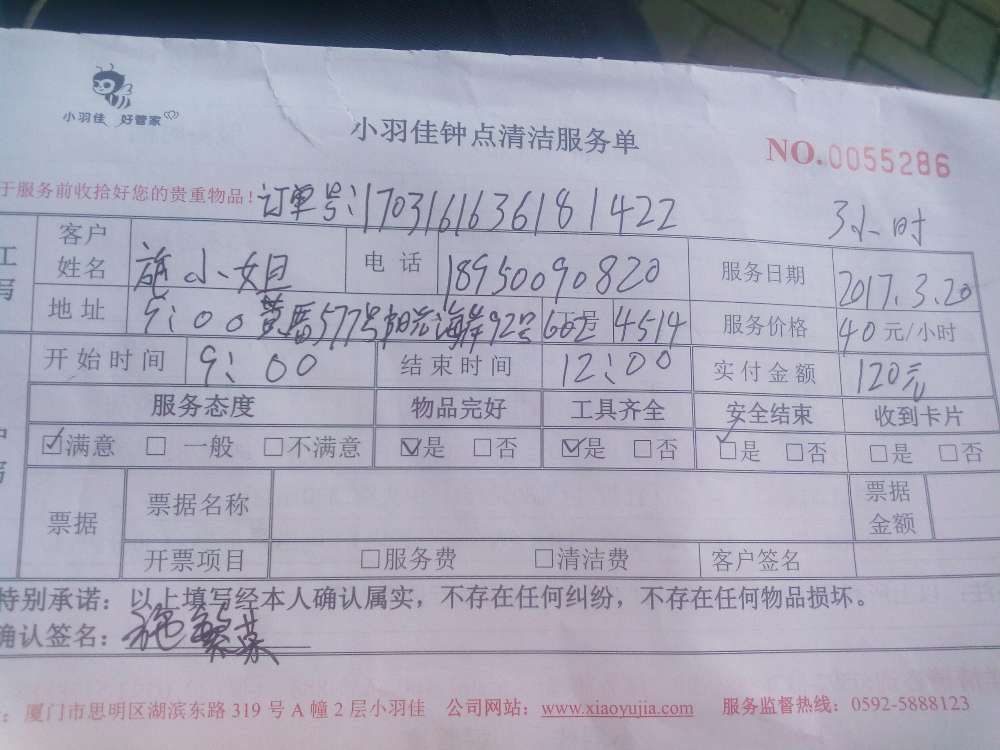 小羽佳 好管家
小羽佳钟点清洁服务单
NO.0055286
于服务前收拾好您的贵重物品! 订单号:1703161636181422 3小时
工
写
客户姓名 施小姐 电话 18950090820 服务日期 2017.3.20
地址 9:00黄厝577号阳光海岸92号602 工号 4514 服务价格 40元/小时
开始时间 9:00 结束时间 12:00 实付金额 120元
服务态度 物品完好 工具齐全 安全结束 收到卡片
☑满意 □一般 □不满意 ☑是 □否 ☑是 □否 ☑是 □否 □是 □否
票据 票据名称 票据金额
开票项目 □服务费 □清洁费 客户签名
特别承诺:以上填写经本人确认属实,不存在任何纠纷,不存在任何物品损坏。
确认签名:施
:厦门市思明区湖滨东路 319 号 A 幢 2 层小羽佳 公司网站:www.xiaoyujia.com 服务监督热线:0592-5888123